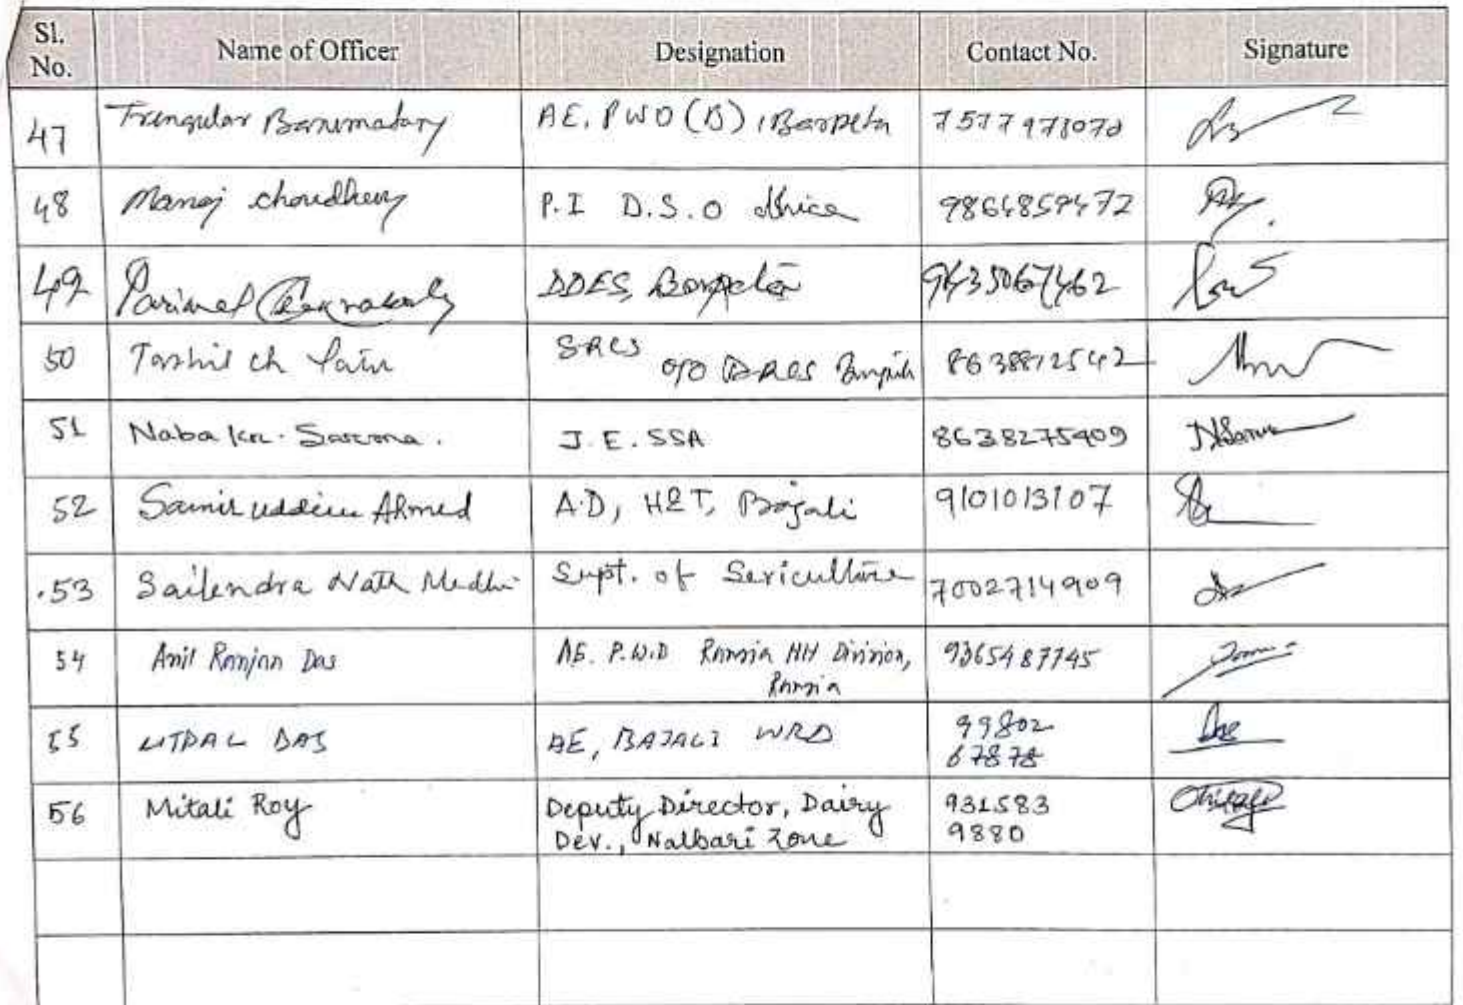 Sl. No. Name of Officer Designation Contact No. Signature
47 Barumatary AE, PWD (B), Barpeta
48 Manoj Choudhury P.I D.S.O office 9864859472
49 Parimal Chakrabarty DDES, Barpeta
50 ch SRCS o/o 8638812542
51 Naba Kr. Sarma. J.E. SSA 8638275409
52 Samiruddin Ahmed A.D, H&T, Bajali 9101013107
53 Sailendra Nath Medhi Supt. of Sericulture 7002714909
54 Anil Ranjan Das AE. P.W.D Rangia NH Division, Rangia 9365487745
55 UTPAL DAS AE, BAJALI WRD 99802
67878
56 Mitali Roy Deputy Director, Dairy 931583
Dev., Nalbari Zone 9880